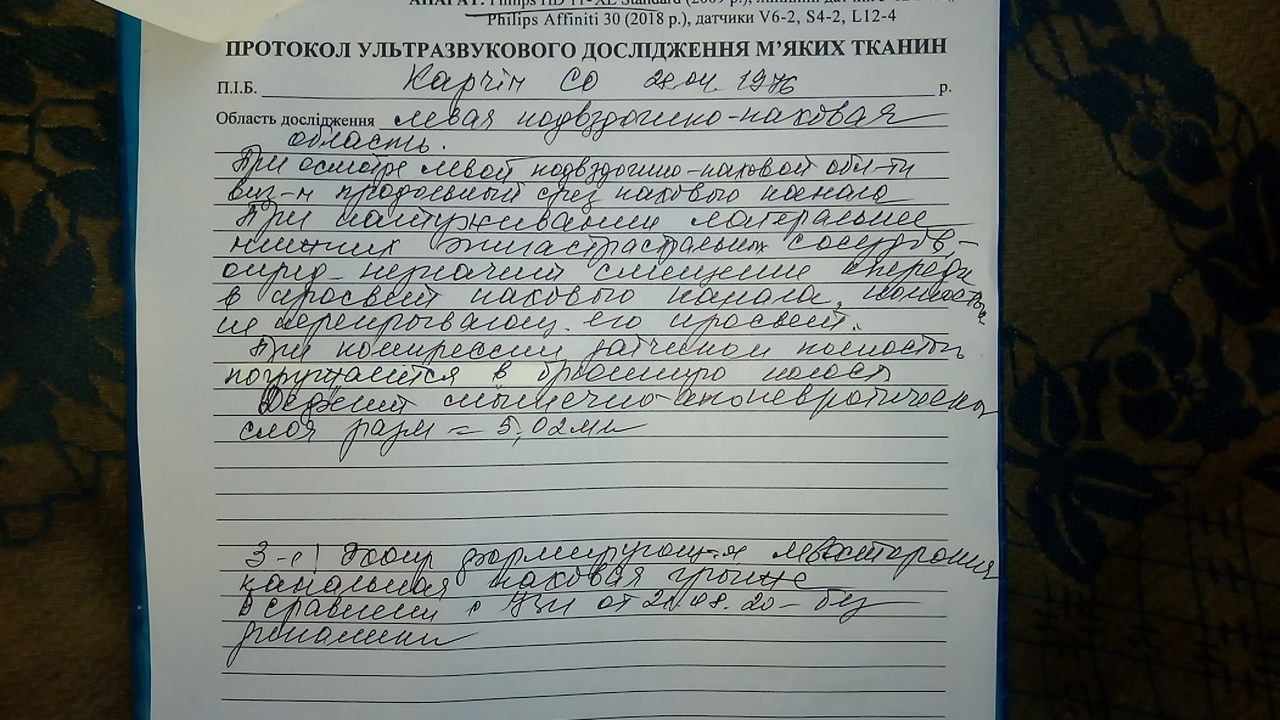 АПАРАТ: Philips HD 11 XE Standard (2009 р.),
Philips Affiniti 30 (2018 р.), датчики V6-2, S4-2, L12-4
ПРОТОКОЛ УЛЬТРАЗВУКОВОГО ДОСЛІДЖЕННЯ М’ЯКИХ ТКАНИН
П.І.Б. СО 1976 р.
Область дослідження левая подвздошно-паховая
область.
При осмотре левой подвздошно-паховой обл-ти
виз-н продольный срез пахового канала
При натуживании латеральнее
нижних сосудов,
опред. незначит смещение кпереди
в просвет пахового канала, полностью
не перекрывающ. его просвет.
При компрессии датчиком полностью
погружается в брюшную полость
Дефект мышечно-апоневротическ
слоя разм = 5,02мм
З-е! Эхопр формирующ-я левосторонняя
канальная паховая грыжа
В сравнении с УЗИ от 21.08.20 - без
динамики